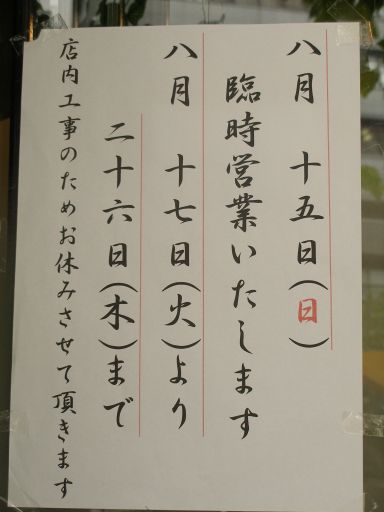 八月 十五日(日)
臨時営業いたします
八月 十七日(火)より
二十六日(木)まで
店内工事のためお休みさせて頂きます